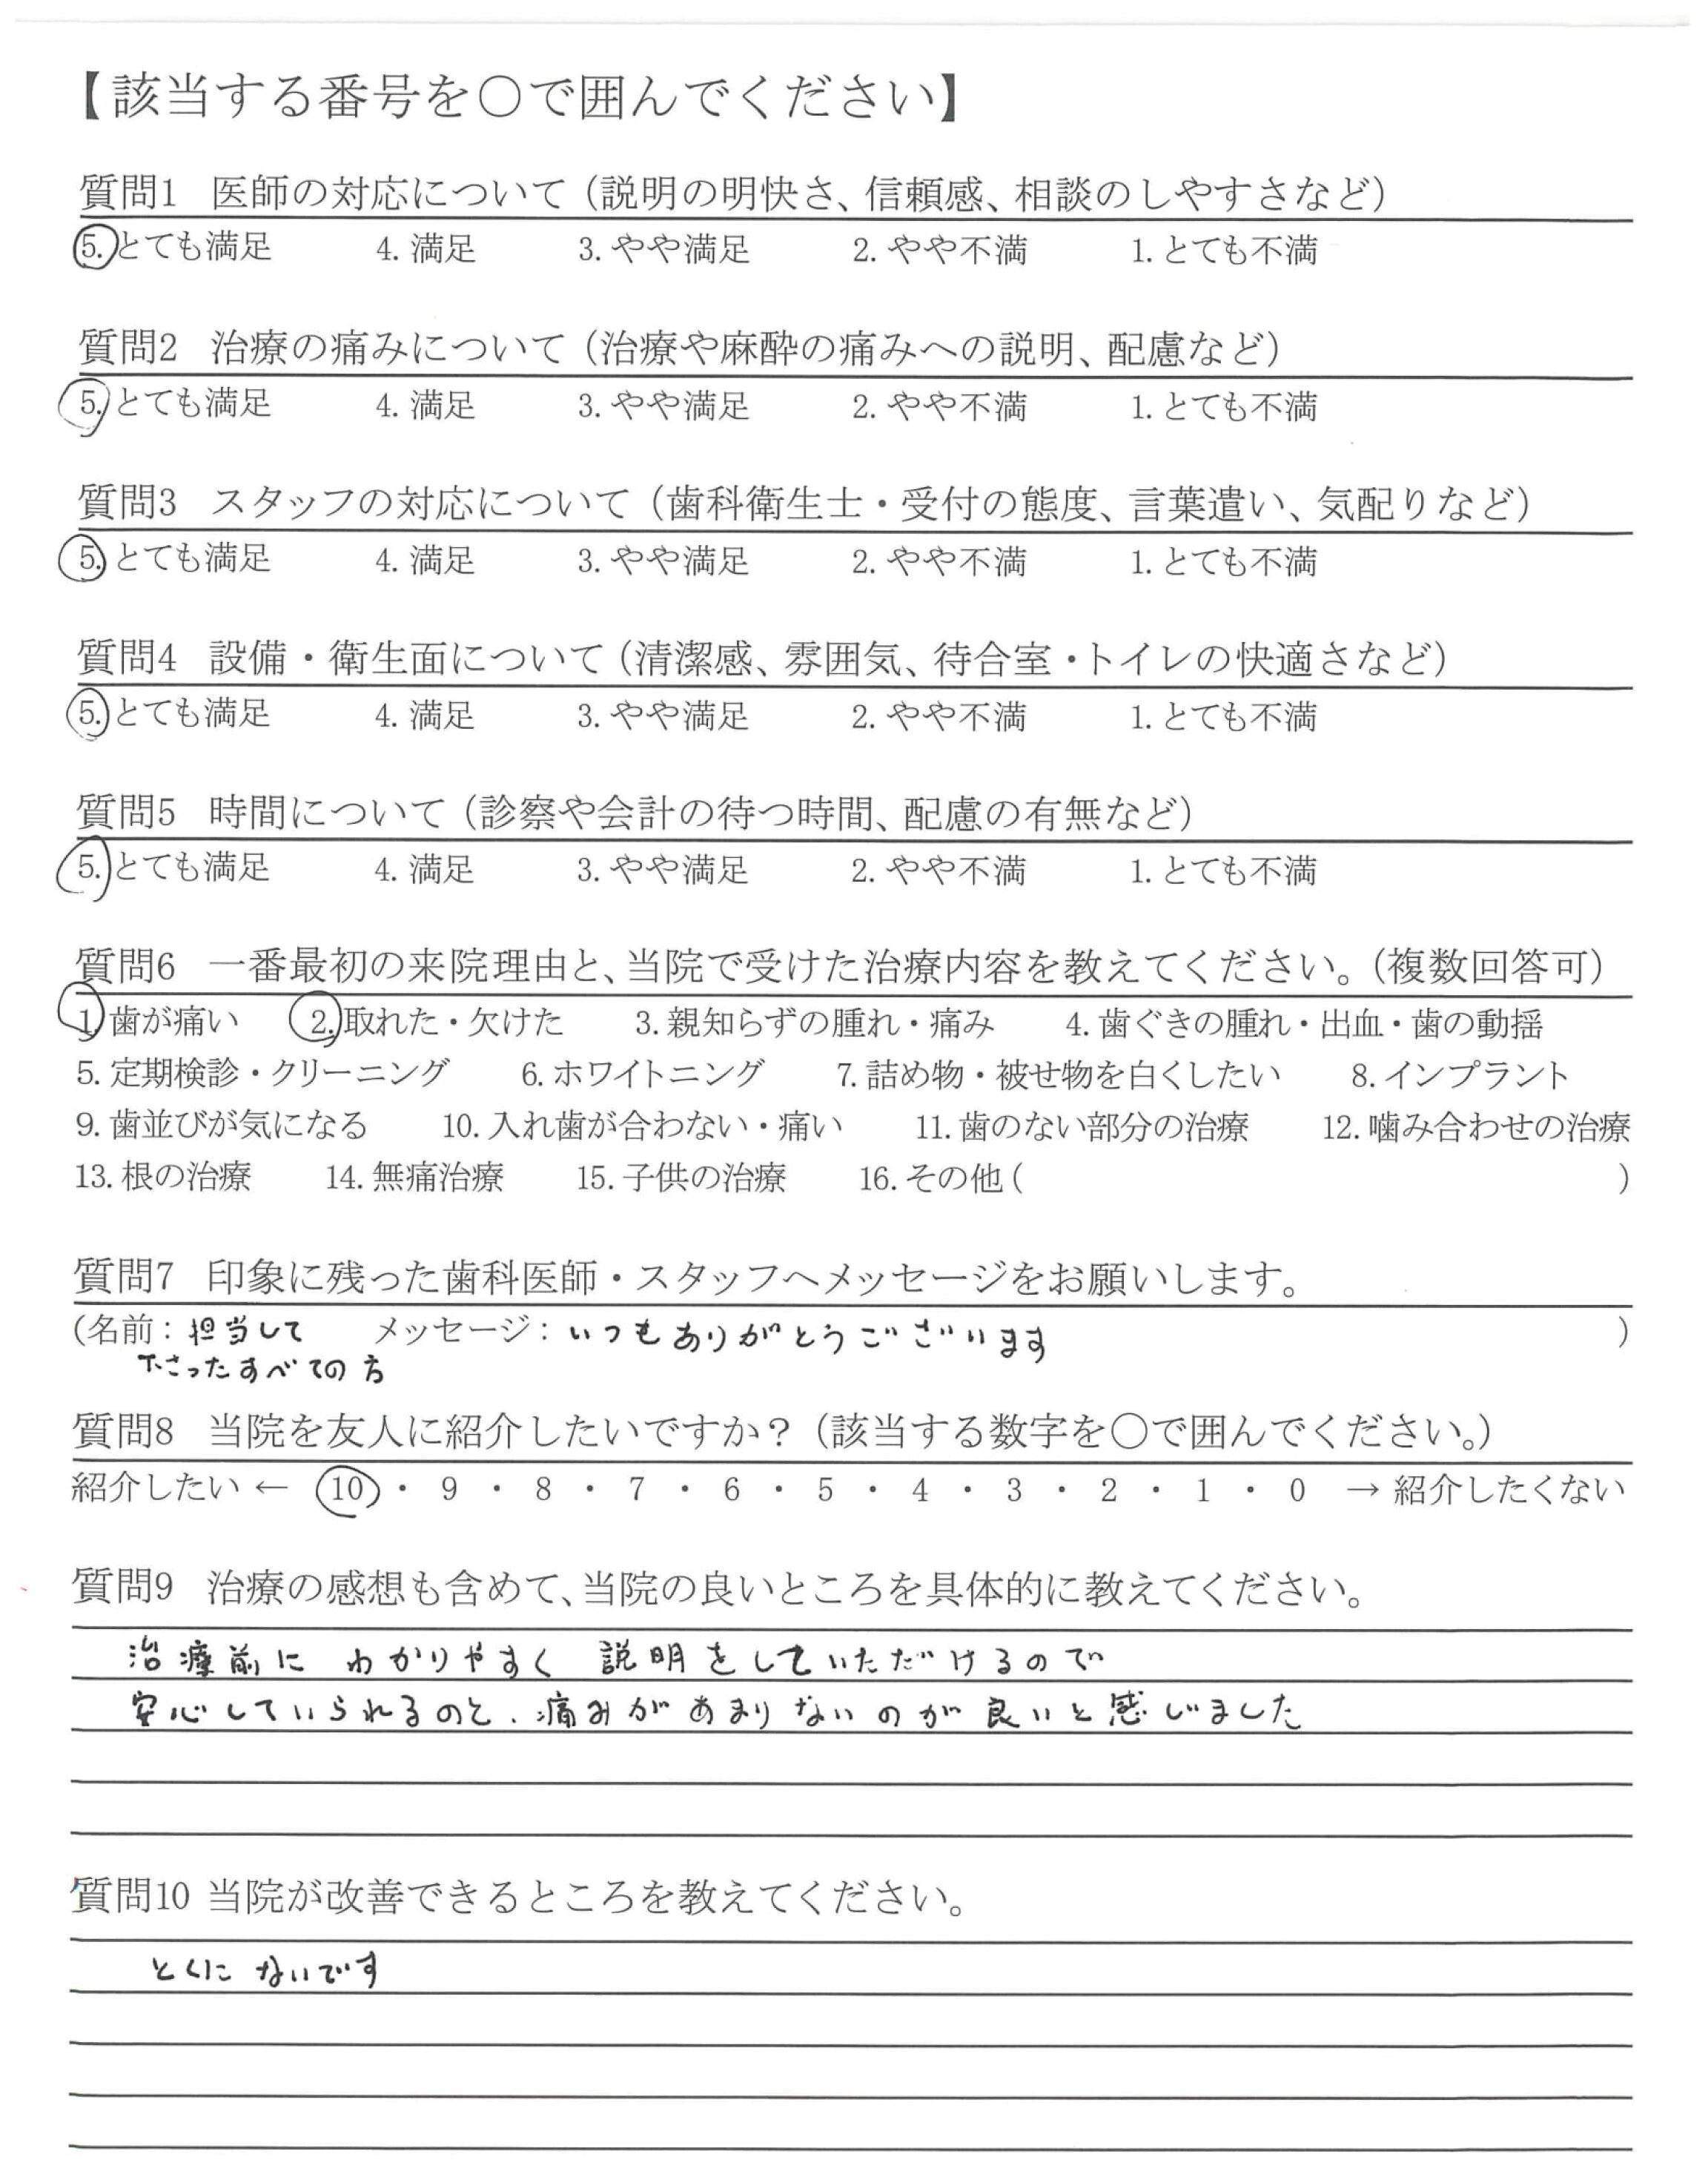 【該当する番号を〇で囲んでください】
質問1 医師の対応について（説明の明快さ、信頼感、相談のしやすさなど）
5. とても満足 4. 満足 3. やや満足 2. やや不満 1. とても不満
質問2 治療の痛みについて（治療や麻酔の痛みへの説明、配慮など）
5. とても満足 4. 満足 3. やや満足 2. やや不満 1. とても不満
質問3 スタッフの対応について（歯科衛生士・受付の態度、言葉遣い、気配りなど）
5. とても満足 4. 満足 3. やや満足 2. やや不満 1. とても不満
質問4 設備・衛生面について（清潔感、雰囲気、待合室・トイレの快適さなど）
5. とても満足 4. 満足 3. やや満足 2. やや不満 1. とても不満
質問5 時間について（診察や会計の待つ時間、配慮の有無など）
5. とても満足 4. 満足 3. やや満足 2. やや不満 1. とても不満
質問6 一番最初の来院理由と、当院で受けた治療内容を教えてください。（複数回答可）
1. 歯が痛い 2. 取れた・欠けた 3. 親知らずの腫れ・痛み 4. 歯ぐきの腫れ・出血・歯の動揺
5. 定期検診・クリーニング 6. ホワイトニング 7. 詰め物・被せ物を白くしたい 8. インプラント
9. 歯並びが気になる 10. 入れ歯が合わない・痛い 11. 歯のない部分の治療 12. 噛み合わせの治療
13. 根の治療 14. 無痛治療 15. 子供の治療 16. その他（ ）
質問7 印象に残った歯科医師・スタッフへメッセージをお願いします。
（名前：担当して メッセージ：いつもありがとうございます ）
下さったすべての方
質問8 当院を友人に紹介したいですか？（該当する数字を〇で囲んでください。）
紹介したい ← 10 ・ 9 ・ 8 ・ 7 ・ 6 ・ 5 ・ 4 ・ 3 ・ 2 ・ 1 ・ 0 → 紹介したくない
質問9 治療の感想も含めて、当院の良いところを具体的に教えてください。
治療前に わかりやすく 説明をしていただけるので
安心していられるのと、痛みがあまりないのが良いと感じました
質問10 当院が改善できるところを教えてください。
とくにないです